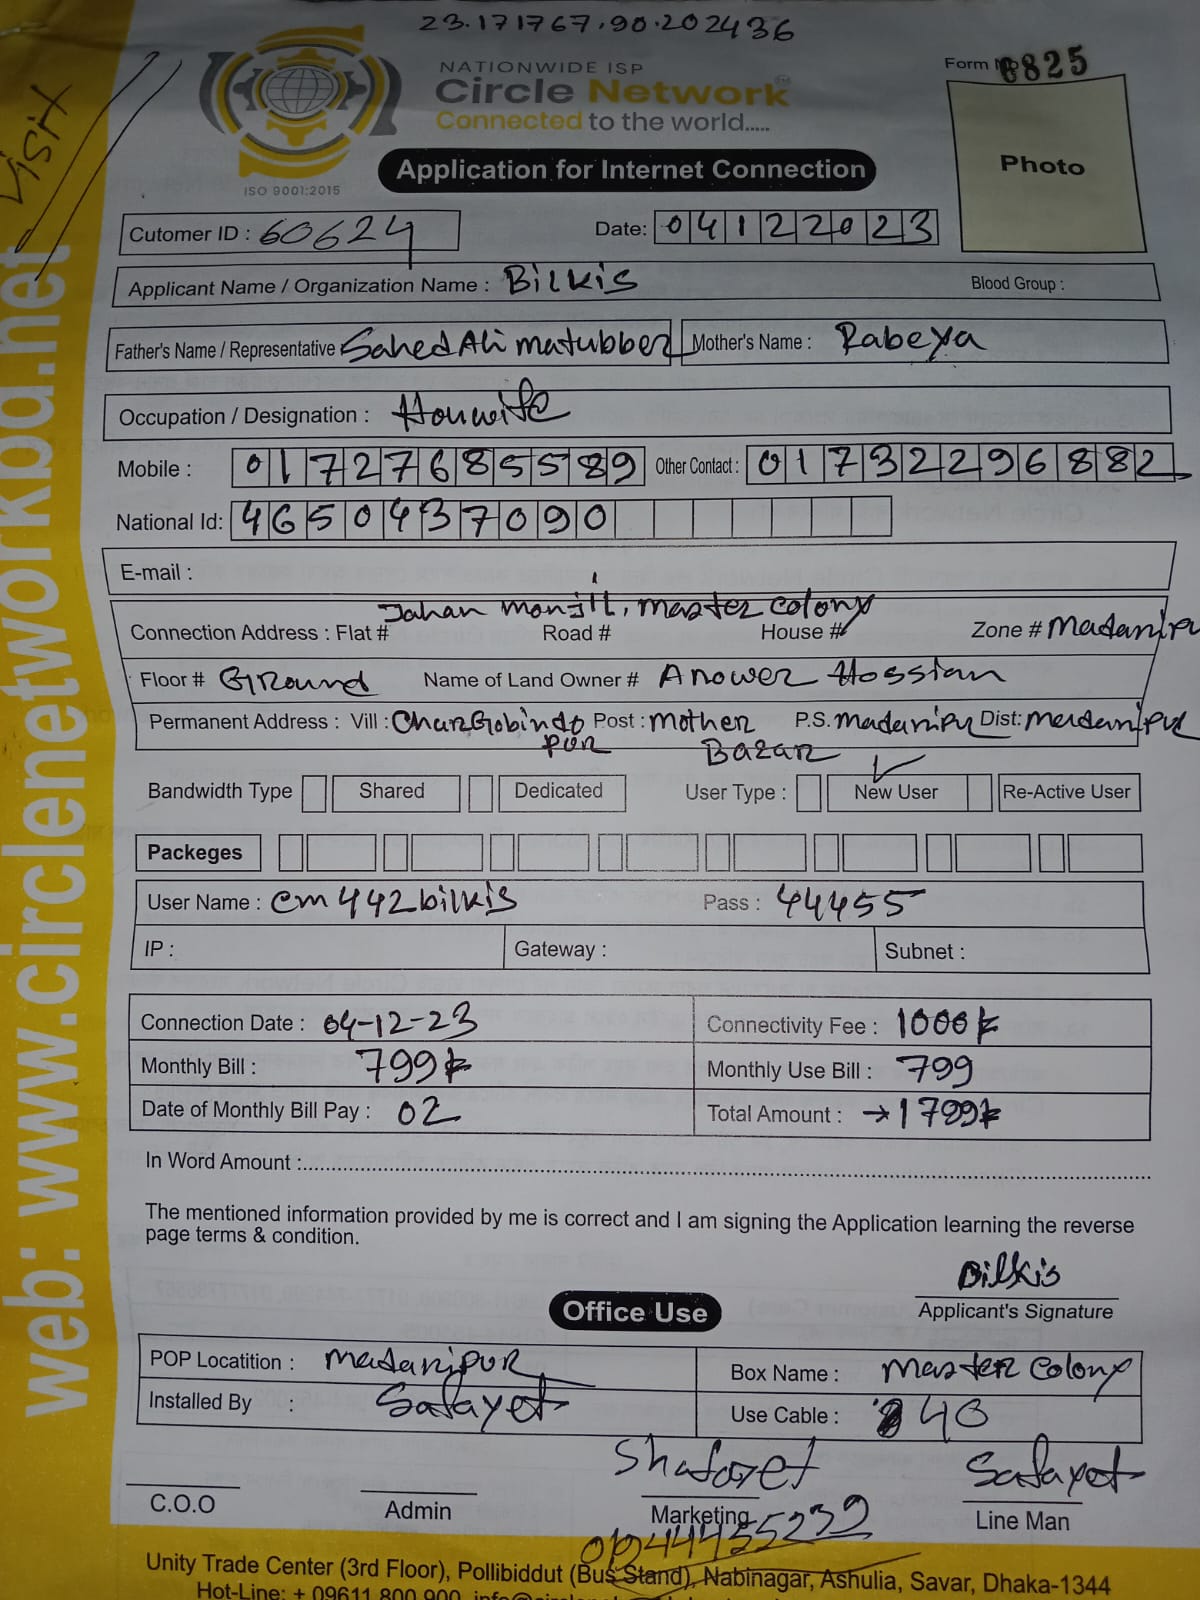 23.171767,90.202436
NATIONWIDE ISP
Circle Network
Connected to the world.....
ISO 9001:2015
Form No 6825
Photo
VISH
Application for Internet Connection
Cutomer ID : 60624 Date: 04122023
Applicant Name / Organization Name : Bilkis Blood Group :
Father's Name / Representative Sahed Ali matubber Mother's Name : Rabeya
Occupation / Designation : Houwife
Mobile : 01727685589 Other Contact : 01732296882
National Id: 4650437090
E-mail :
Jahan monjil, master colony
Connection Address : Flat # Road # House # Zone # Madaripu
Floor # Ground Name of Land Owner # Anower Hossian
Permanent Address : Vill : CharGobindo Post : Mother P.S. madaripu Dist: madaripur
pur Bazar
Bandwidth Type Shared Dedicated User Type : New User Re-Active User
Packeges
User Name : cm442bilkis Pass : 44455
IP : Gateway : Subnet :
Connection Date : 04-12-23 Connectivity Fee : 1000৳
Monthly Bill : 799৳ Monthly Use Bill : 799
Date of Monthly Bill Pay : 02 Total Amount : → 1799৳
In Word Amount :
The mentioned information provided by me is correct and I am signing the Application learning the reverse
page terms & condition.
Bilkis
Applicant's Signature
Office Use
POP Locatition : Madaripur Box Name : Master Colony
Installed By : Safayet Use Cable : 40
Safayet
C.O.O Admin Marketing Line Man
Unity Trade Center (3rd Floor), Pollibiddut (Bus Stand), Nabinagar, Ashulia, Savar, Dhaka-1344
Hot-Line: + 09611 800 900,
web: www.circlenetworkbd.net